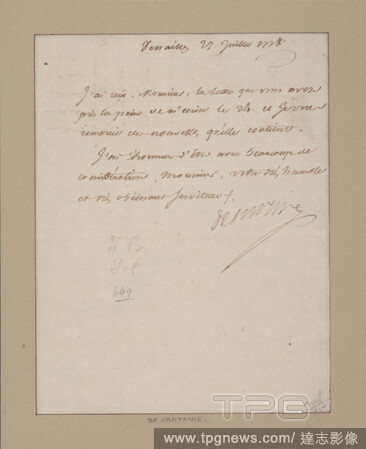 Versailles 27 Juillet 1778
J'ai reçu, Monsieur, la lettre que vous avez
pris la peine de m'ecrire le 24. et je vous
remercie des nouvelles qu'elle contient.
J'ai l'honneur d'être avec beaucoup de
considération, Monsieur, votre très humble
et très obéissant serviteur.
De Sartine
649
DE SARTAINE.
TPG
www.tpgnews.com/達志影像